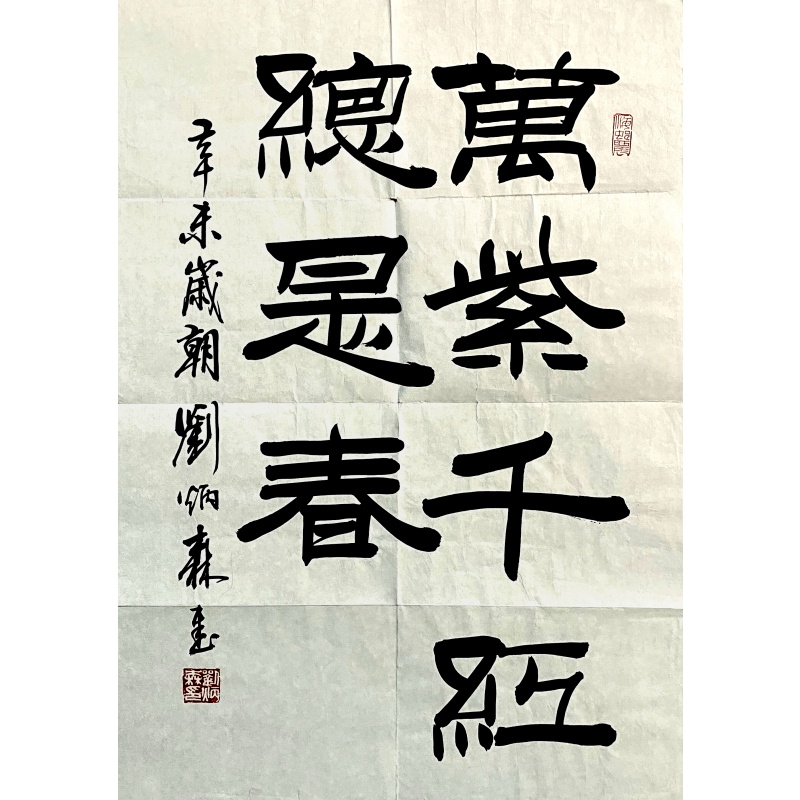 萬紫千紅
總是春
辛未歲朝劉炳森書
劉炳森印